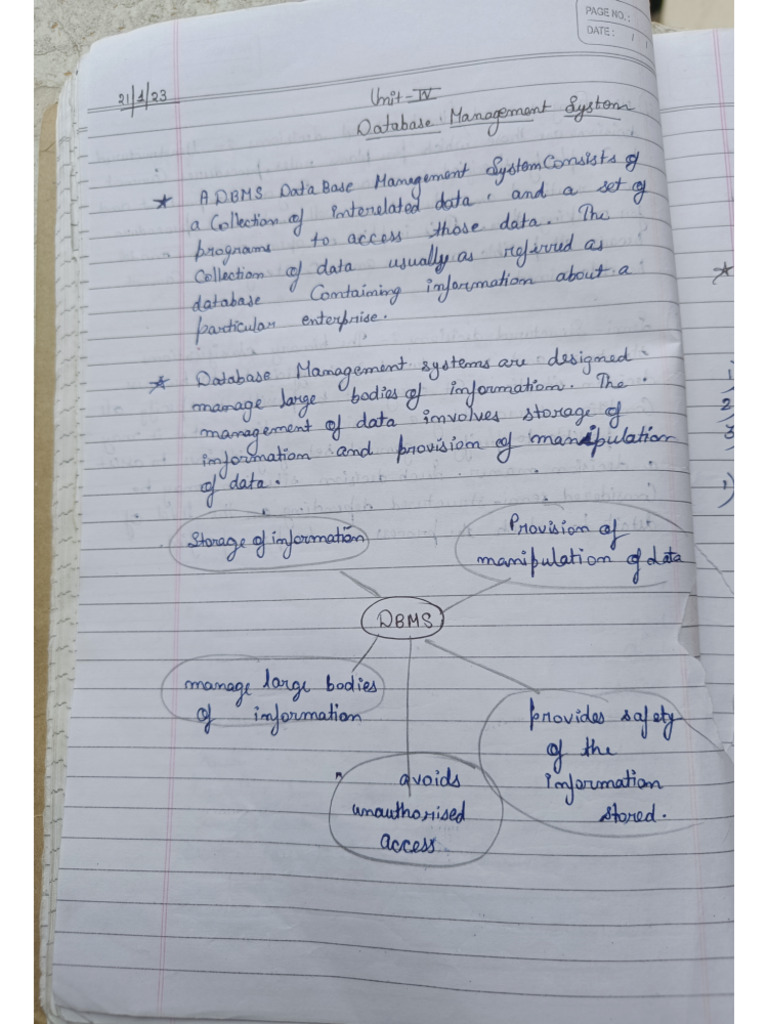 PAGE NO.:
DATE: / /
21/1/23
Unit-IV
Database Management System
* A DBMS Data Base Management System Consists of
a Collection of interelated data. and a set of
programs to access those data. The
Collection of data usually as referred as
database Containing information about a
particular enterprise.
* Database Management systems are designed
manage large bodies of information. The
management of data involves storage of
information and provision of manipulation
of data.
Storage of information
Provision of
manipulation of data
DBMS
manage large bodies
of information
provides safety
of the
information
stored.
avoids
unauthorised
access
*
1)
2
3
1)